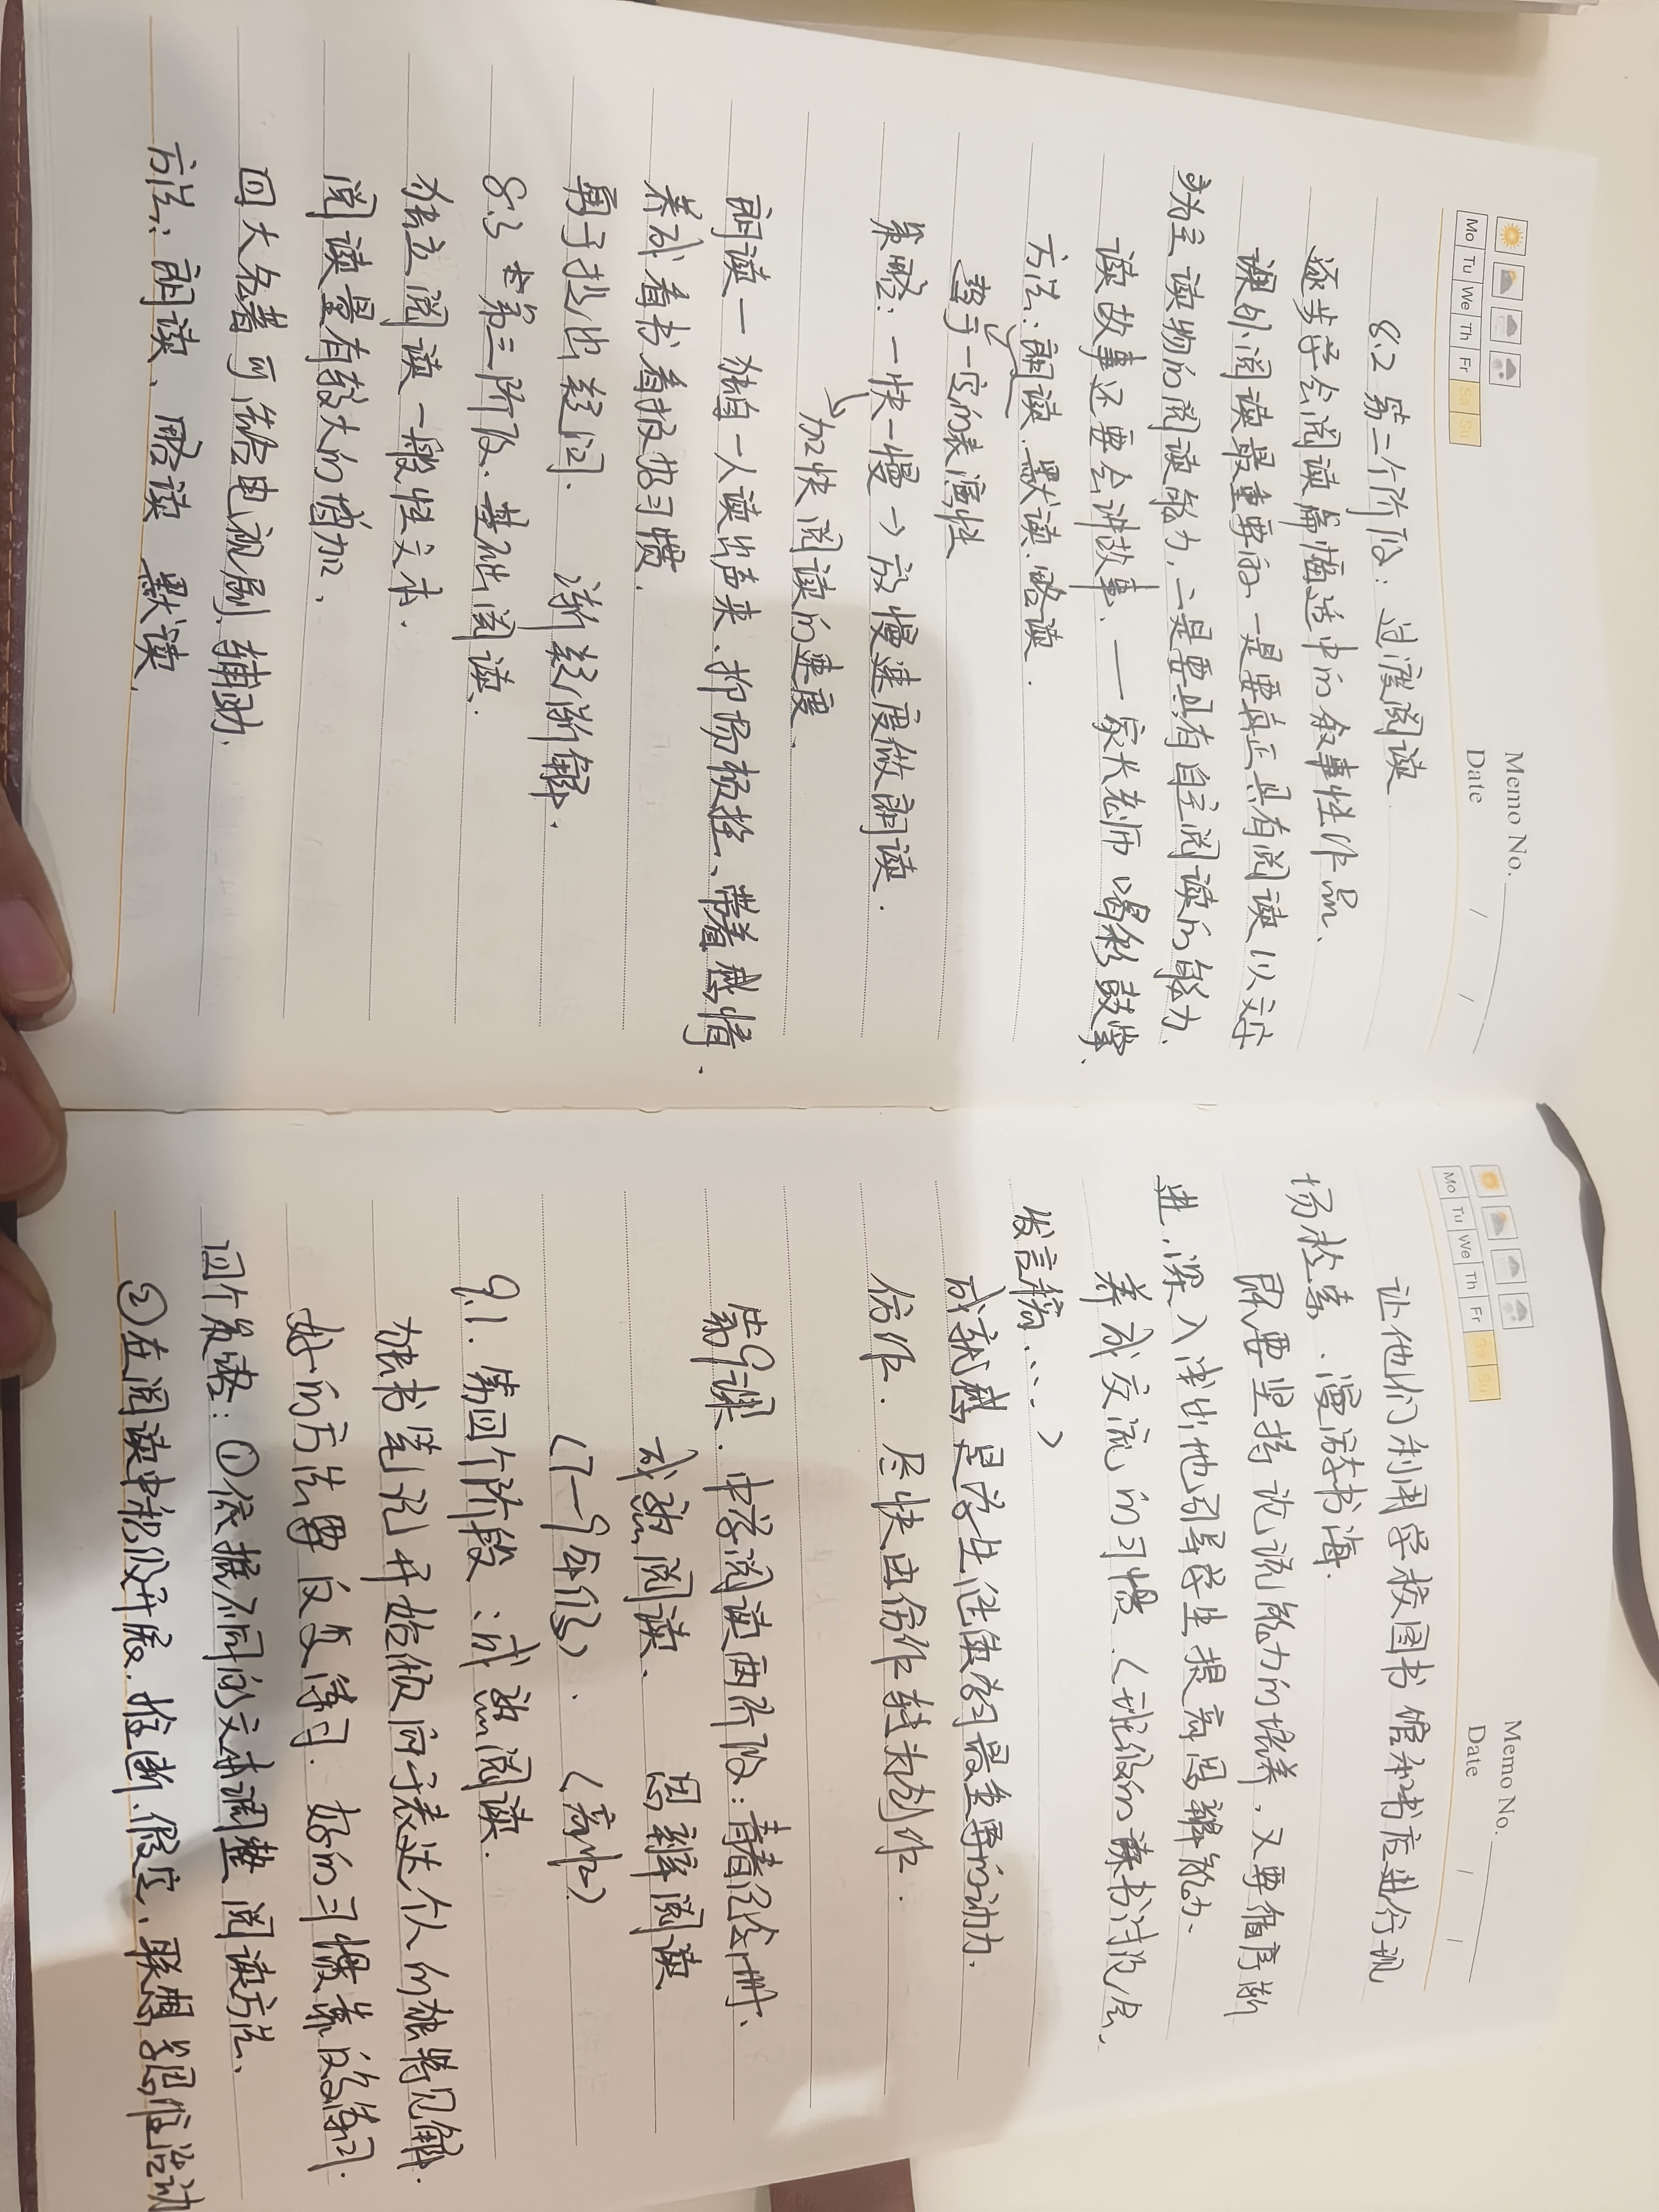 Memo No.
Mo Tu We Th Fr Sa Su
Date / /
8.2 第二个阶段：过渡阅读
逐步学会阅读篇幅适中的叙事性作品、
课外阅读最重要的一是要真正具有阅读以文字
为主读物的阅读能力，二是要具有自主阅读的能力、
读故事还要会讲故事、——家长老师 喝彩鼓掌、
方法：朗读、默读、略读．
一定的表演性
策略：一快一慢→放慢速度做朗读．
加快阅读的速度、
朗读一独自一人读出声来、抑扬顿挫、带着感情、
养成看书看报好习惯．
勇于提出疑问． 渐疑渐解．
8.3 第三阶段、基础阅读、
独立阅读一般性文本．
阅读量有较大的增加、
四大名著可结合电视剧、辅助．
方法：朗读、略读 默读、
Memo No.
Mo Tu We Th Fr Sa Su
Date / /
让他们利用学校图书馆和书店进行现
场检索、漫游书海．
既要坚持记忆能力的培养，又要循序渐
进，深入浅出地引导学生提高思辨能力、
养成交流的习惯．（班级的读书讨论会、
发言稿....）
成就感是学生继续学习最重要的动力．
仿作．尽快由仿作转为创作．
第9课．中学阅读两阶段：青春纪念册、
成熟阅读、 思辨阅读
（7-9年级）． （高中）
9.1．第四个阶段：成熟阅读．
读书笔记开始倾向于表达个人的独特见解．
好的方法要反复练习．好的习惯靠反复练习．
四个策略：①依据不同的文本调整阅读方法、
②在阅读中积极开展．推断、假定、联想等思维活动